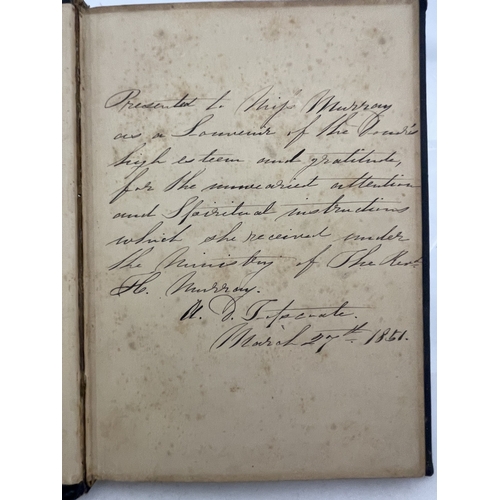 Presented to Miss Murray
as a Souvenir of the Donor's
high esteem and gratitude,
for the unwearied attention
and Spiritual instructions
which she received under
the Ministry of The Revd
H. Murray.
D.
March 27th 1851.